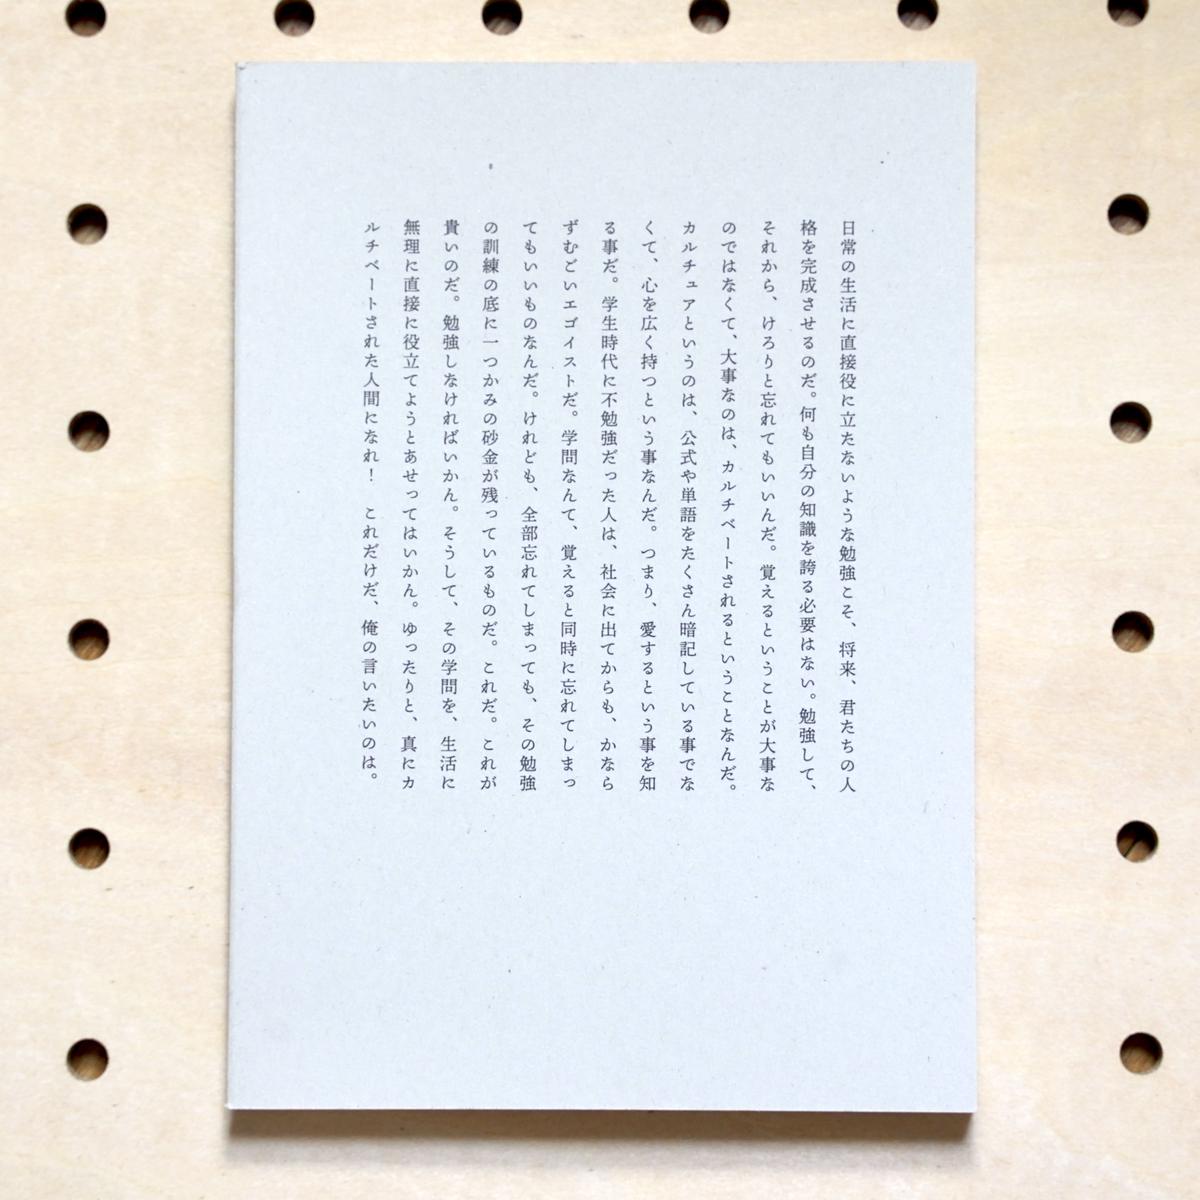 日常の生活に直接役に立たないような勉強こそ、将来、君たちの人
格を完成させるのだ。何も自分の知識を誇る必要はない。勉強して、
それから、けろりと忘れてもいいんだ。覚えるということが大事な
のではなくて、大事なのは、カルチベートされるということなんだ。
カルチュアというのは、公式や単語をたくさん暗記している事でな
くて、心を広く持つという事なんだ。つまり、愛するという事を知
る事だ。学生時代に不勉強だった人は、社会に出てからも、かなら
ずむごいエゴイストだ。学問なんて、覚えると同時に忘れてしまっ
てもいいものなんだ。けれども、全部忘れてしまっても、その勉強
の訓練の底に一つかみの砂金が残っているものだ。これだ。これが
貴いのだ。勉強しなければいかん。そうして、その学問を、生活に
無理に直接に役立てようとあせってはいかん。ゆったりと、真にカ
ルチベートされた人間になれ！　これだけだ、俺の言いたいのは。